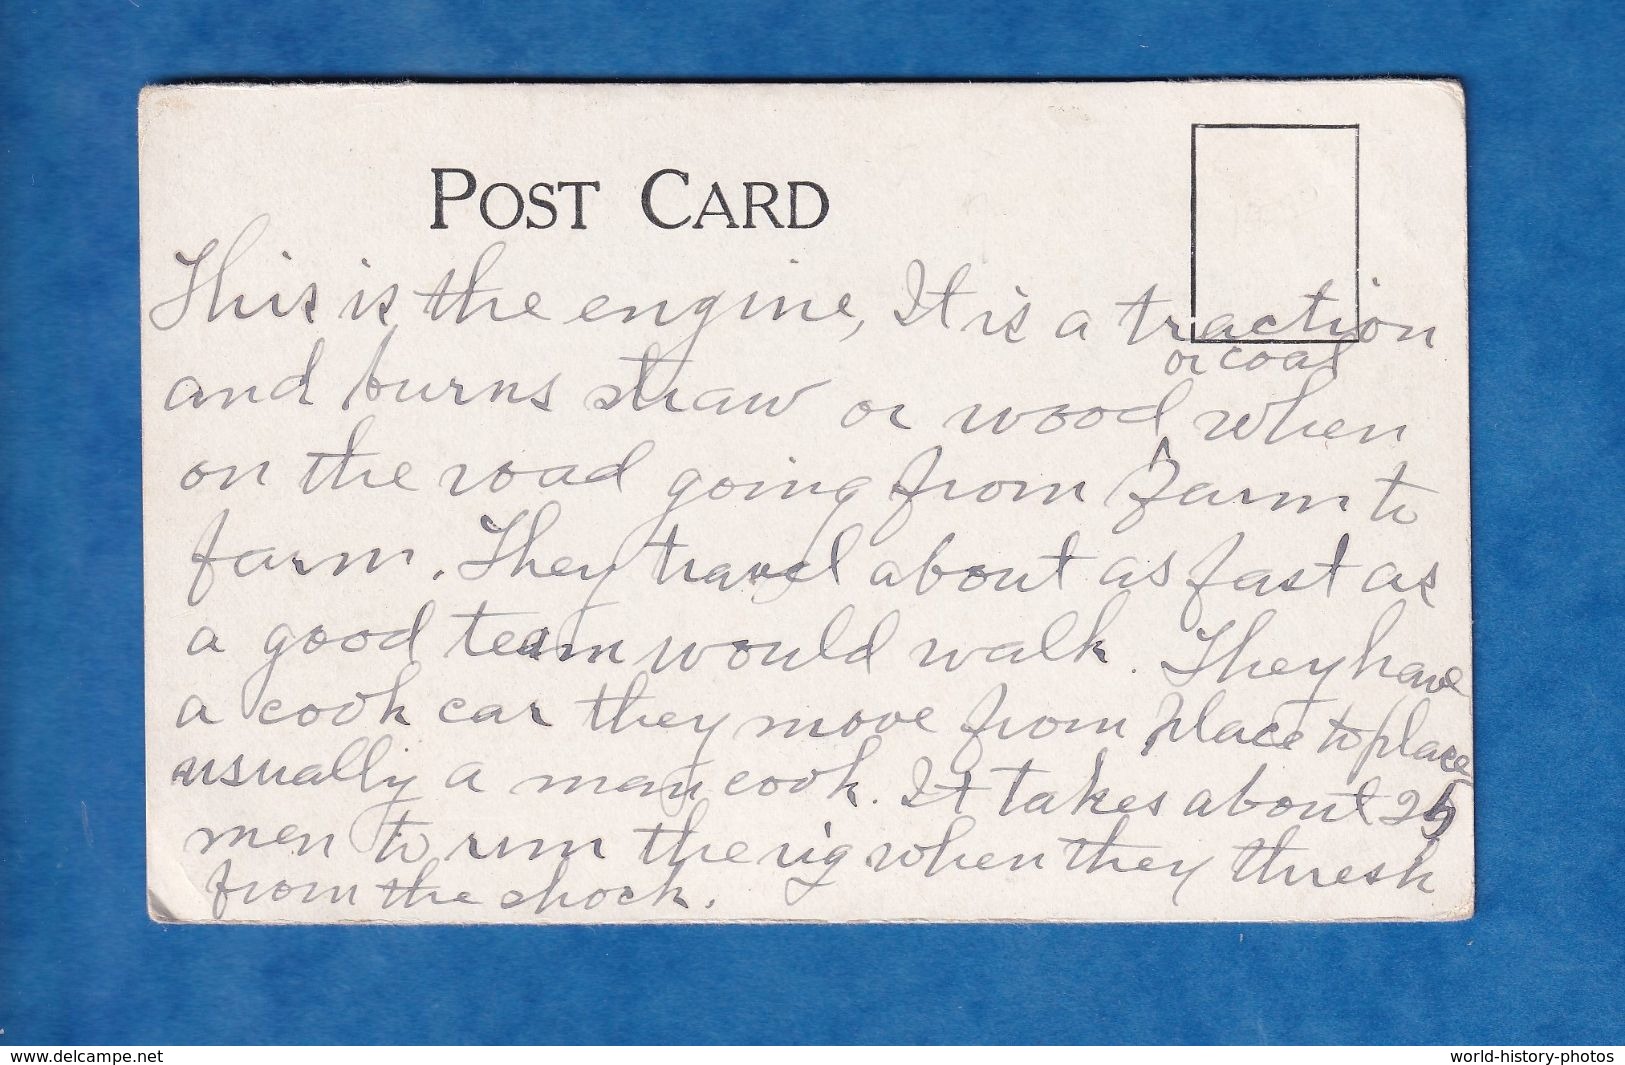 POST CARD
This is the engine, It is a traction
or coal
and burns straw or wood when
on the road going from farm to
farm. They travel about as fast as
a good team would walk. They have
a cook car they move from place to place
usually a man cook. It takes about 25
men to run the rig when they thresh
from the shock.
www.delcampe.net
world-history-photos